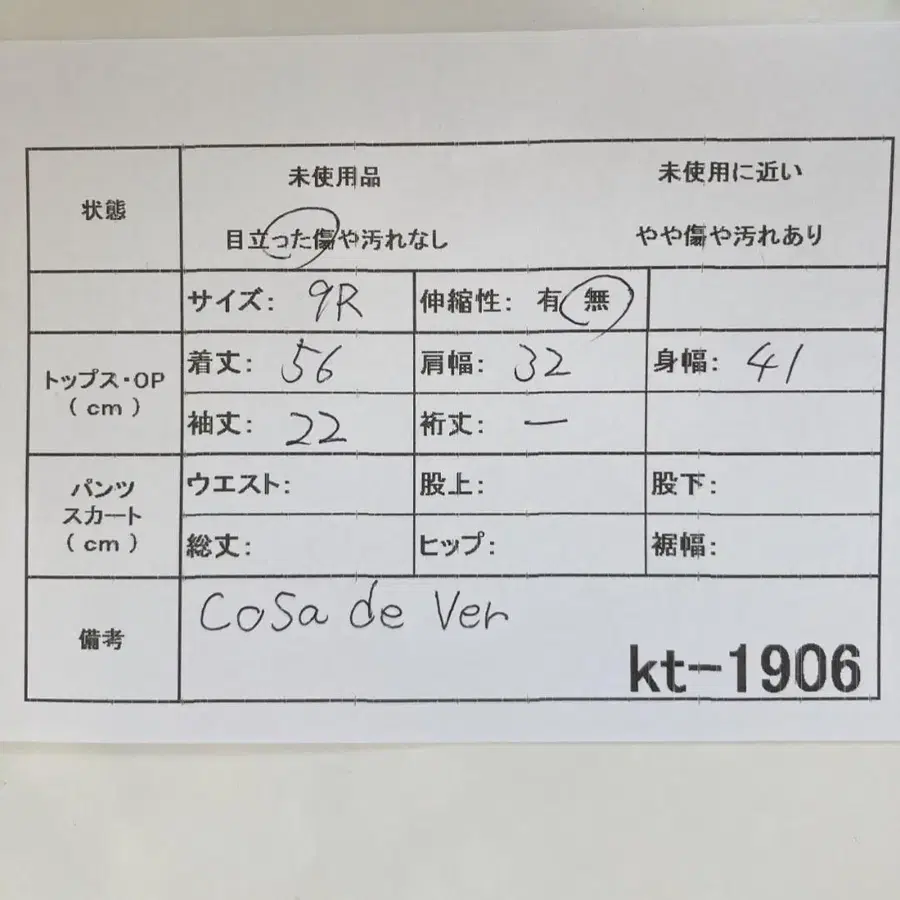 状態
未使用品 未使用に近い
目立った傷や汚れなし やや傷や汚れあり
サイズ: 9R 伸縮性: 有 無
トップス・OP
(cm)
着丈: 56 肩幅: 32 身幅: 41
袖丈: 22 裄丈: ー
パンツ
スカート
(cm)
ウエスト: 股上: 股下:
総丈: ヒップ: 裾幅:
備考
Cosa de Ver
kt-1906